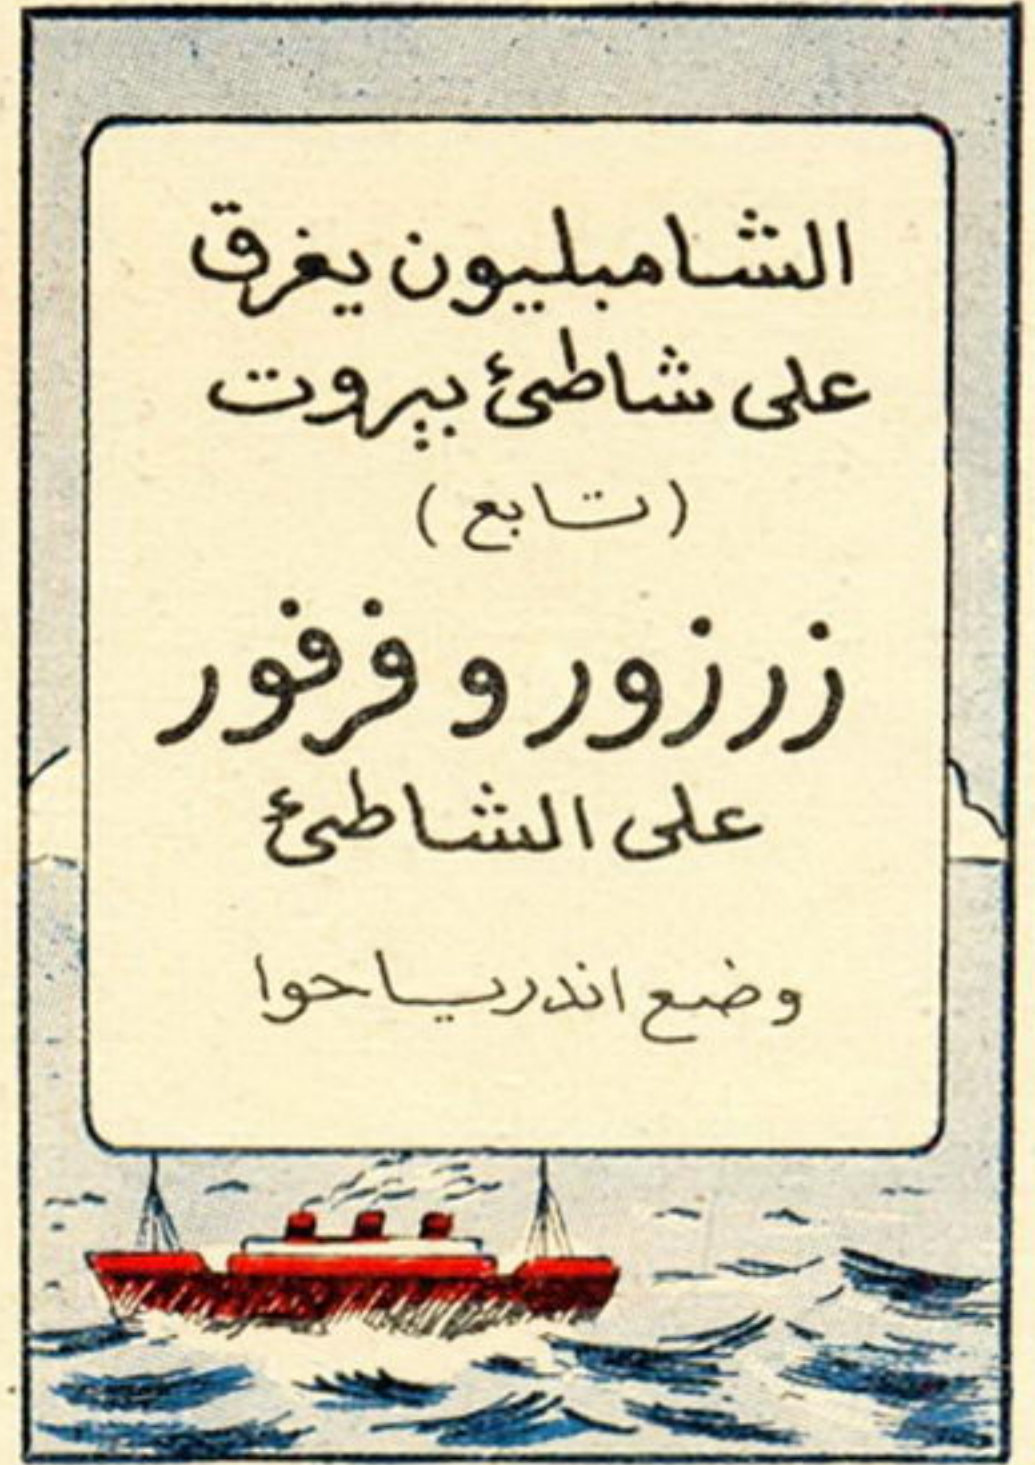 الشامبليون يغرق
على شاطئ بيروت
(تابع)
زرزور و فرفور
على الشاطئ
وضع اندريا حوا